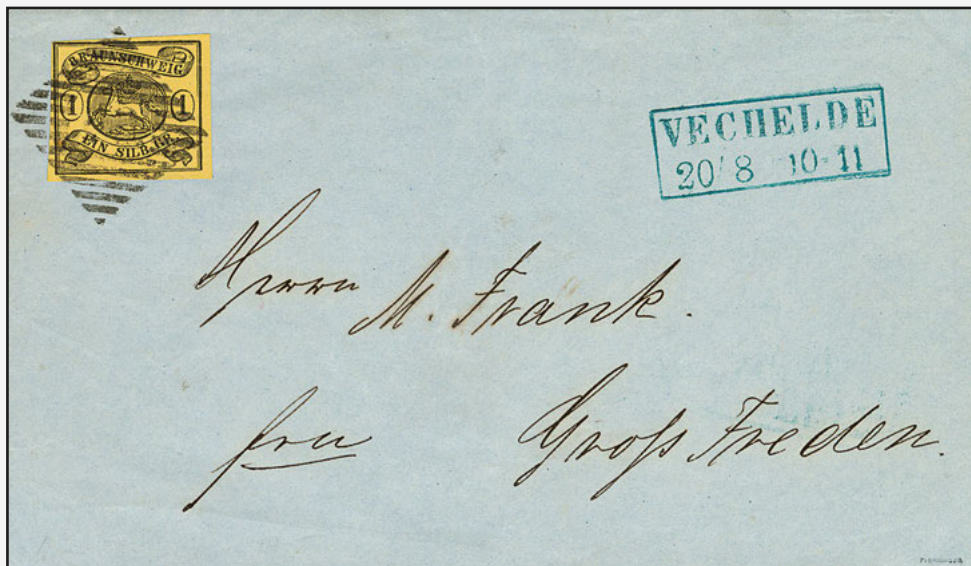 BRAUNSCHWEIG
1 1
EIN SILB. GR.
VECHELDE
20/8 10-11
Herrn M. Frank.
fru Groß Freden.